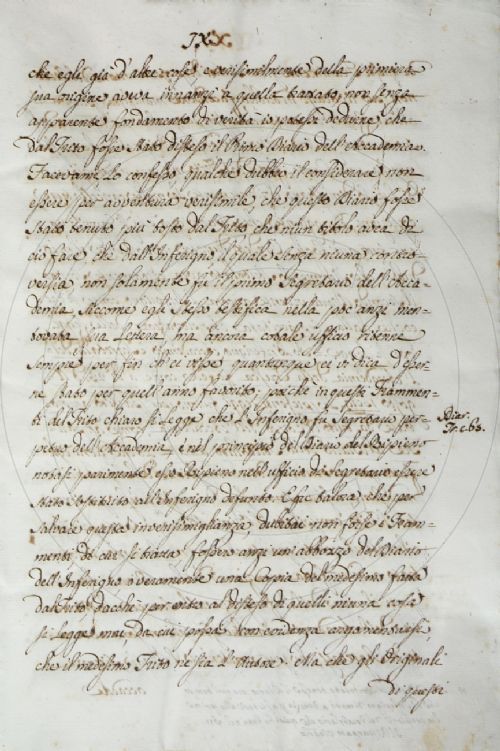 IXX.
che egli già d'altre cose, e verisimilmente della primiera
sua origine avea innanzi a quella trattato, non senza
apparente fondamento di verità io potessi dedurre che
dal Trito fosse stato disteso il Primo Diario dell'Accademia.
Faceami, lo confesso qualche dubbio il considerare non
essere per avventura verisimile, che questo Diario fosse
stato tenuto più tosto dal Trito che niun titolo avea di
ciò fare che dall'Inferigno il quale senza niuna contro-
versia non solamente fu il primo Segretario dell'Acca-
demia siccome egli stesso testifica nella poc'anzi men-
tovata sua Lettera, ma ancora cotale ufficio ritenne
sempre per fin ch'ei visse quantunque ei vi dica d'esser-
ne stato per quell'anno favorito: poichè in questi Frammen-
ti del Trito chiaro si legge che l'Inferigno fu Segretario per-
petuo dell'Accademia, e nel principio del Diario del Ripieno
notasi parimente esso Ripieno nell'ufficio di Segretario essere
stato sostituito all'Inferigno defunto. E fu talora che per
salvare questa inverisimiglianza, dubitai non forse i Fram-
menti di che si tratta fossero anzi un abbozzo del Diario
dell'Inferigno o veramente una Copia del medesimo fatta
dal Trito, dacchè per entro al disteso di quelli niuna cosa
si legge mai da cui possa con evidenza argomentarsi
che il medesimo Trito ne sia l'Autore. Ma che gli Originali
di questi
Diar.
Tr. c. 60.